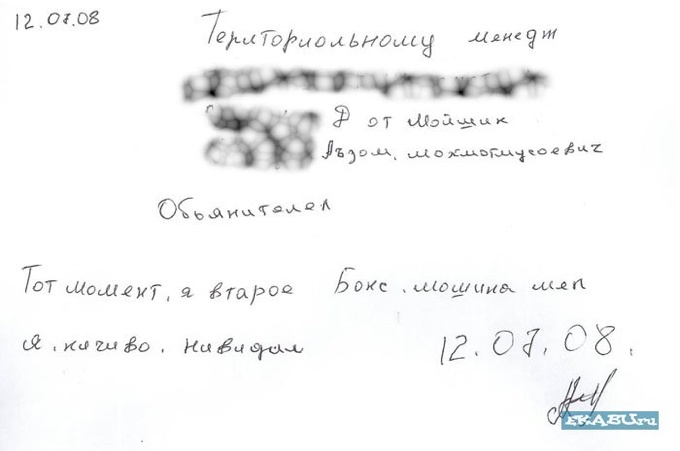 12.07.08
Териториольному менедт
Д от Мойщик
Аъзом, мохмотмусоевич
Обьянителел
Тот момент, я второе Бокс, мошина меп
я, ничиво, нивидал
12.07.08.
EKABU.ru